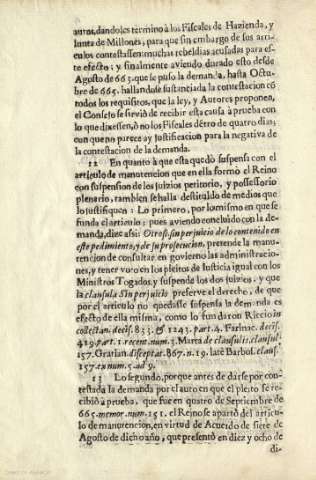 autos, dandoles termino à los Fiscales de Hazienda, y
Iunta de Millones, para que sin embargo de sus arti-
culos contestassen: muchas rebeldias acusadas para es-
te efecto; y finalmente aviendo durado esto desde
Agosto de 663. que se puso la demanda, hasta Octu-
bre de 665. hallandose sustanciada la contestacion cõ
todos los requisitos, que la ley, y Autores proponen,
el Consejo se sirviò de recibir esta causa à prueba con
lo que dixessen, ò no los Fiscales dẽtro de quatro dias;
con que no parece ay justificacion para la negativa de
la contestacion de la demanda.
12 En quanto à que esta quedò suspensa con el
articulo de manutencion que en ella formò el Reino
con suspension de los juizios peritorio, y possessorio
plenario, tambien se halla destituìdo de medios que
lo justifiquen: Lo primero, por lo mismo en que se
funda el articulo; pues aviendo concluìdo con la de-
manda, dize assi: Otrosi, sin perjuicio de lo contenido en
este pedimiento, y de su prosecucion, pretende la manu-
tencion de consultar en govierno las administracio-
nes, y tener voto en los pleitos de Iusticia igual con los
Ministros Togados, y suspende los dos juizios, y que
la clausula Sin perjuicio preserve el derecho, de que
por el articulo no quedasse suspensa la demanda es
efecto de ella misma, como lo fundaron Riccio in
collectan. decis. 833. & 1243. part. 4. Farinac. decis.
419. part. 1. recent. num. 3. Marta de clausulis, clausul.
157. Gratian. disceptat. 867. n. 19. latè Barbos. claus.
157. ex num. 5. ad 9.
13 Lo segundo, porque antes de darse por con-
testada la demanda por el auto en que el pleito se re-
cibiò à prueba, que fue en quatro de Septiembre de
665. memor. num. 151. el Reino se apartò del articu-
lo de manutencion, en virtud de Acuerdo de siete de
Agosto de dicho año, que presentò en diez y ocho de
di-